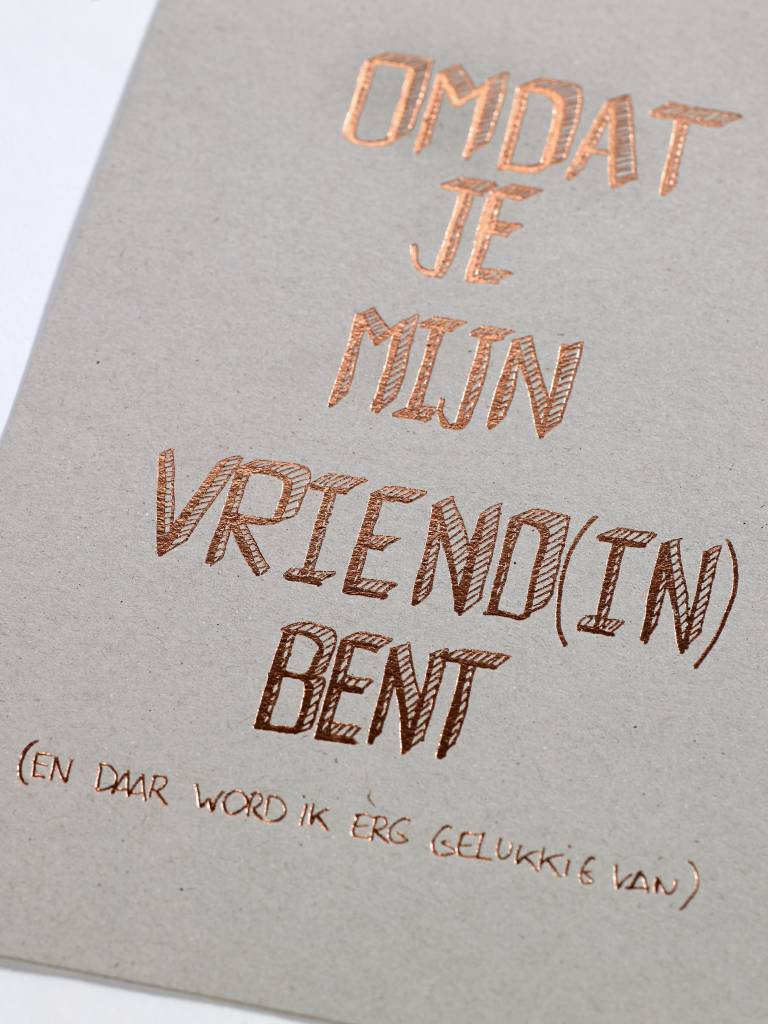 OMDAT
JE
MIJN
VRIEND(IN)
BENT
(EN DAAR WORD IK ERG GELUKKIG VAN)